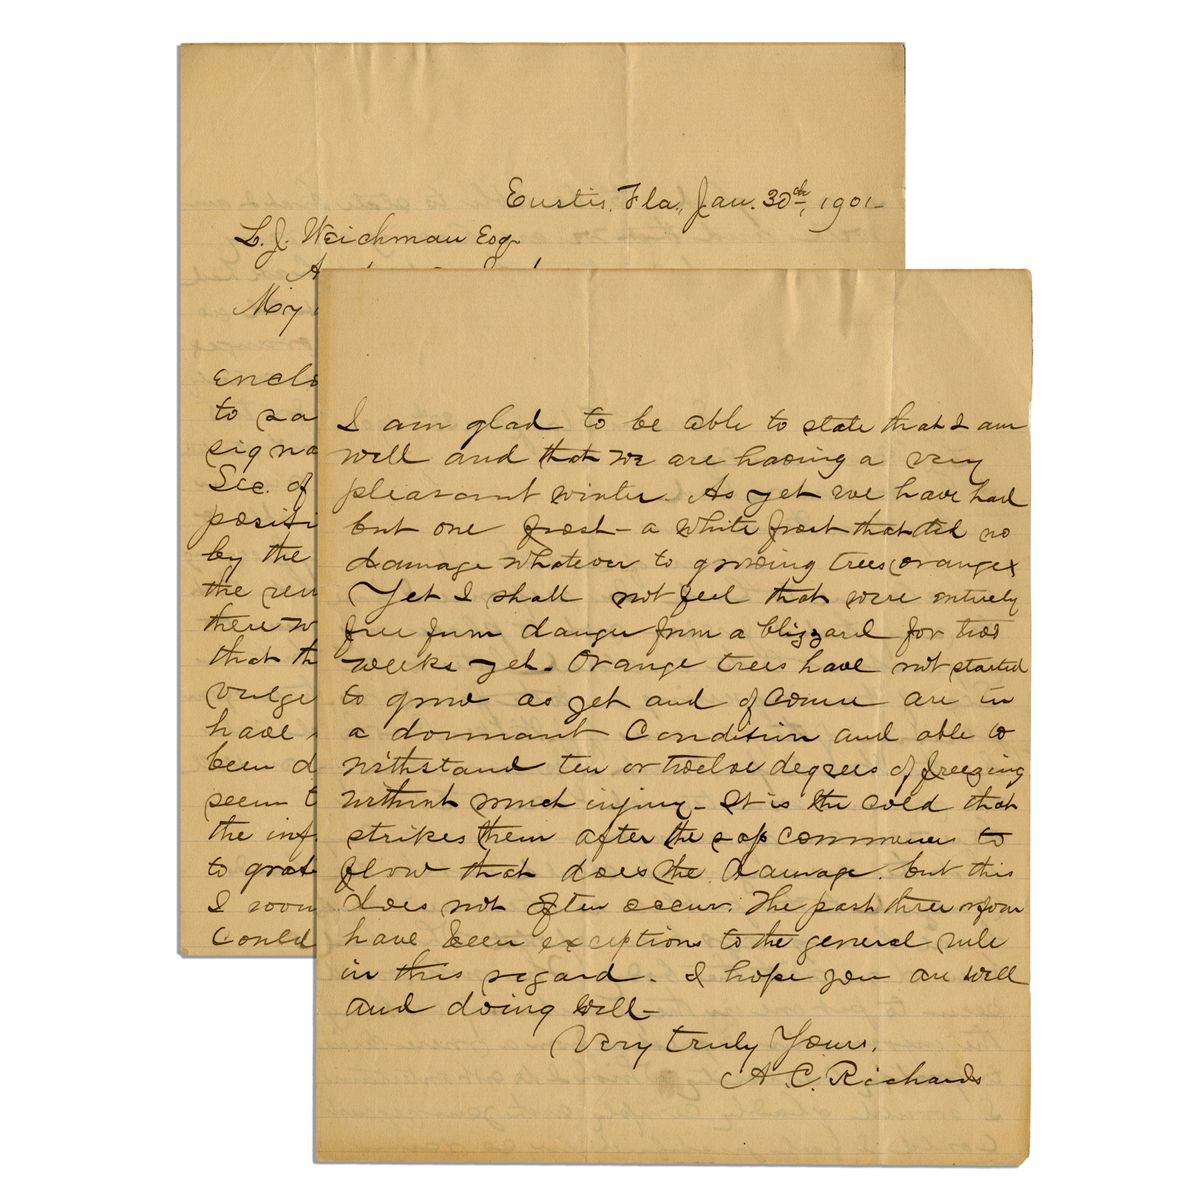 Eustis, Fla., Jan. 30th, 1901
L. J. Weichman Esq.
My
enclo
to sa
signa
Sec. of
positi
by the
the
there
that th
vulge
have
been d
seem t
the inf
to grat
I woul
Could
I am glad to be able to state that I am
well and that we are having a very
pleasant winter. As yet we have had
but one frost - a white frost that did no
damage whatever to growing trees, oranges
Yet I shall not feel that were entirely
free from danger from a blizzard for two
weeks yet. Orange trees have not started
to grow as yet and of course are in
a dormant Condition and able to
withstand ten or twelve degrees of freezing
without much injury - It is the cold that
strikes them after the sap commences to
flow that does the damage, but this
does not often occur. The past three or four
have been exceptions to the general rule
in this regard. I hope you are well
and doing well -
Very truly Yours,
A. C. Richards